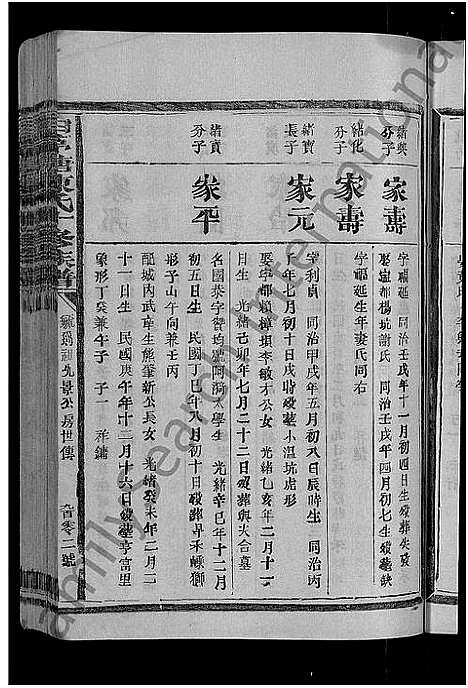 緒興
次子
家壽
字福延 同治壬戌年十一月初四日生歿葬失錄
娶寧都楊坑謝氏 同治壬戌年四月初七生歿葬缺
緒化
次子
家壽
字福延生年妻氏同右
緒寶
長子
家元
字利貞 同治甲戌年五月初八日辰時生 同治丙
子年七月初十日戌時歿葬小溫坑虎形
娶寧都賴璋埧李敏才公女 光緒乙亥年二月十一
日生 光緒己卯年七月二十二日歿葬與夫合墓
緒寶
次子
家平
名國泰字贊均 太學生 光緒辛巳年十二月
初五日生 民國丁巳年八月初十日歿葬 獅
形子山午向兼壬丙
配城內武庠生熊肇新公長女 光緒癸未年二月二
十一日生 民國庚午年十二月十六日歿葬亭富里
象形丁癸兼午子 子一 祥鏞
陳氏十修族譜
景公房世傳
Family Search International